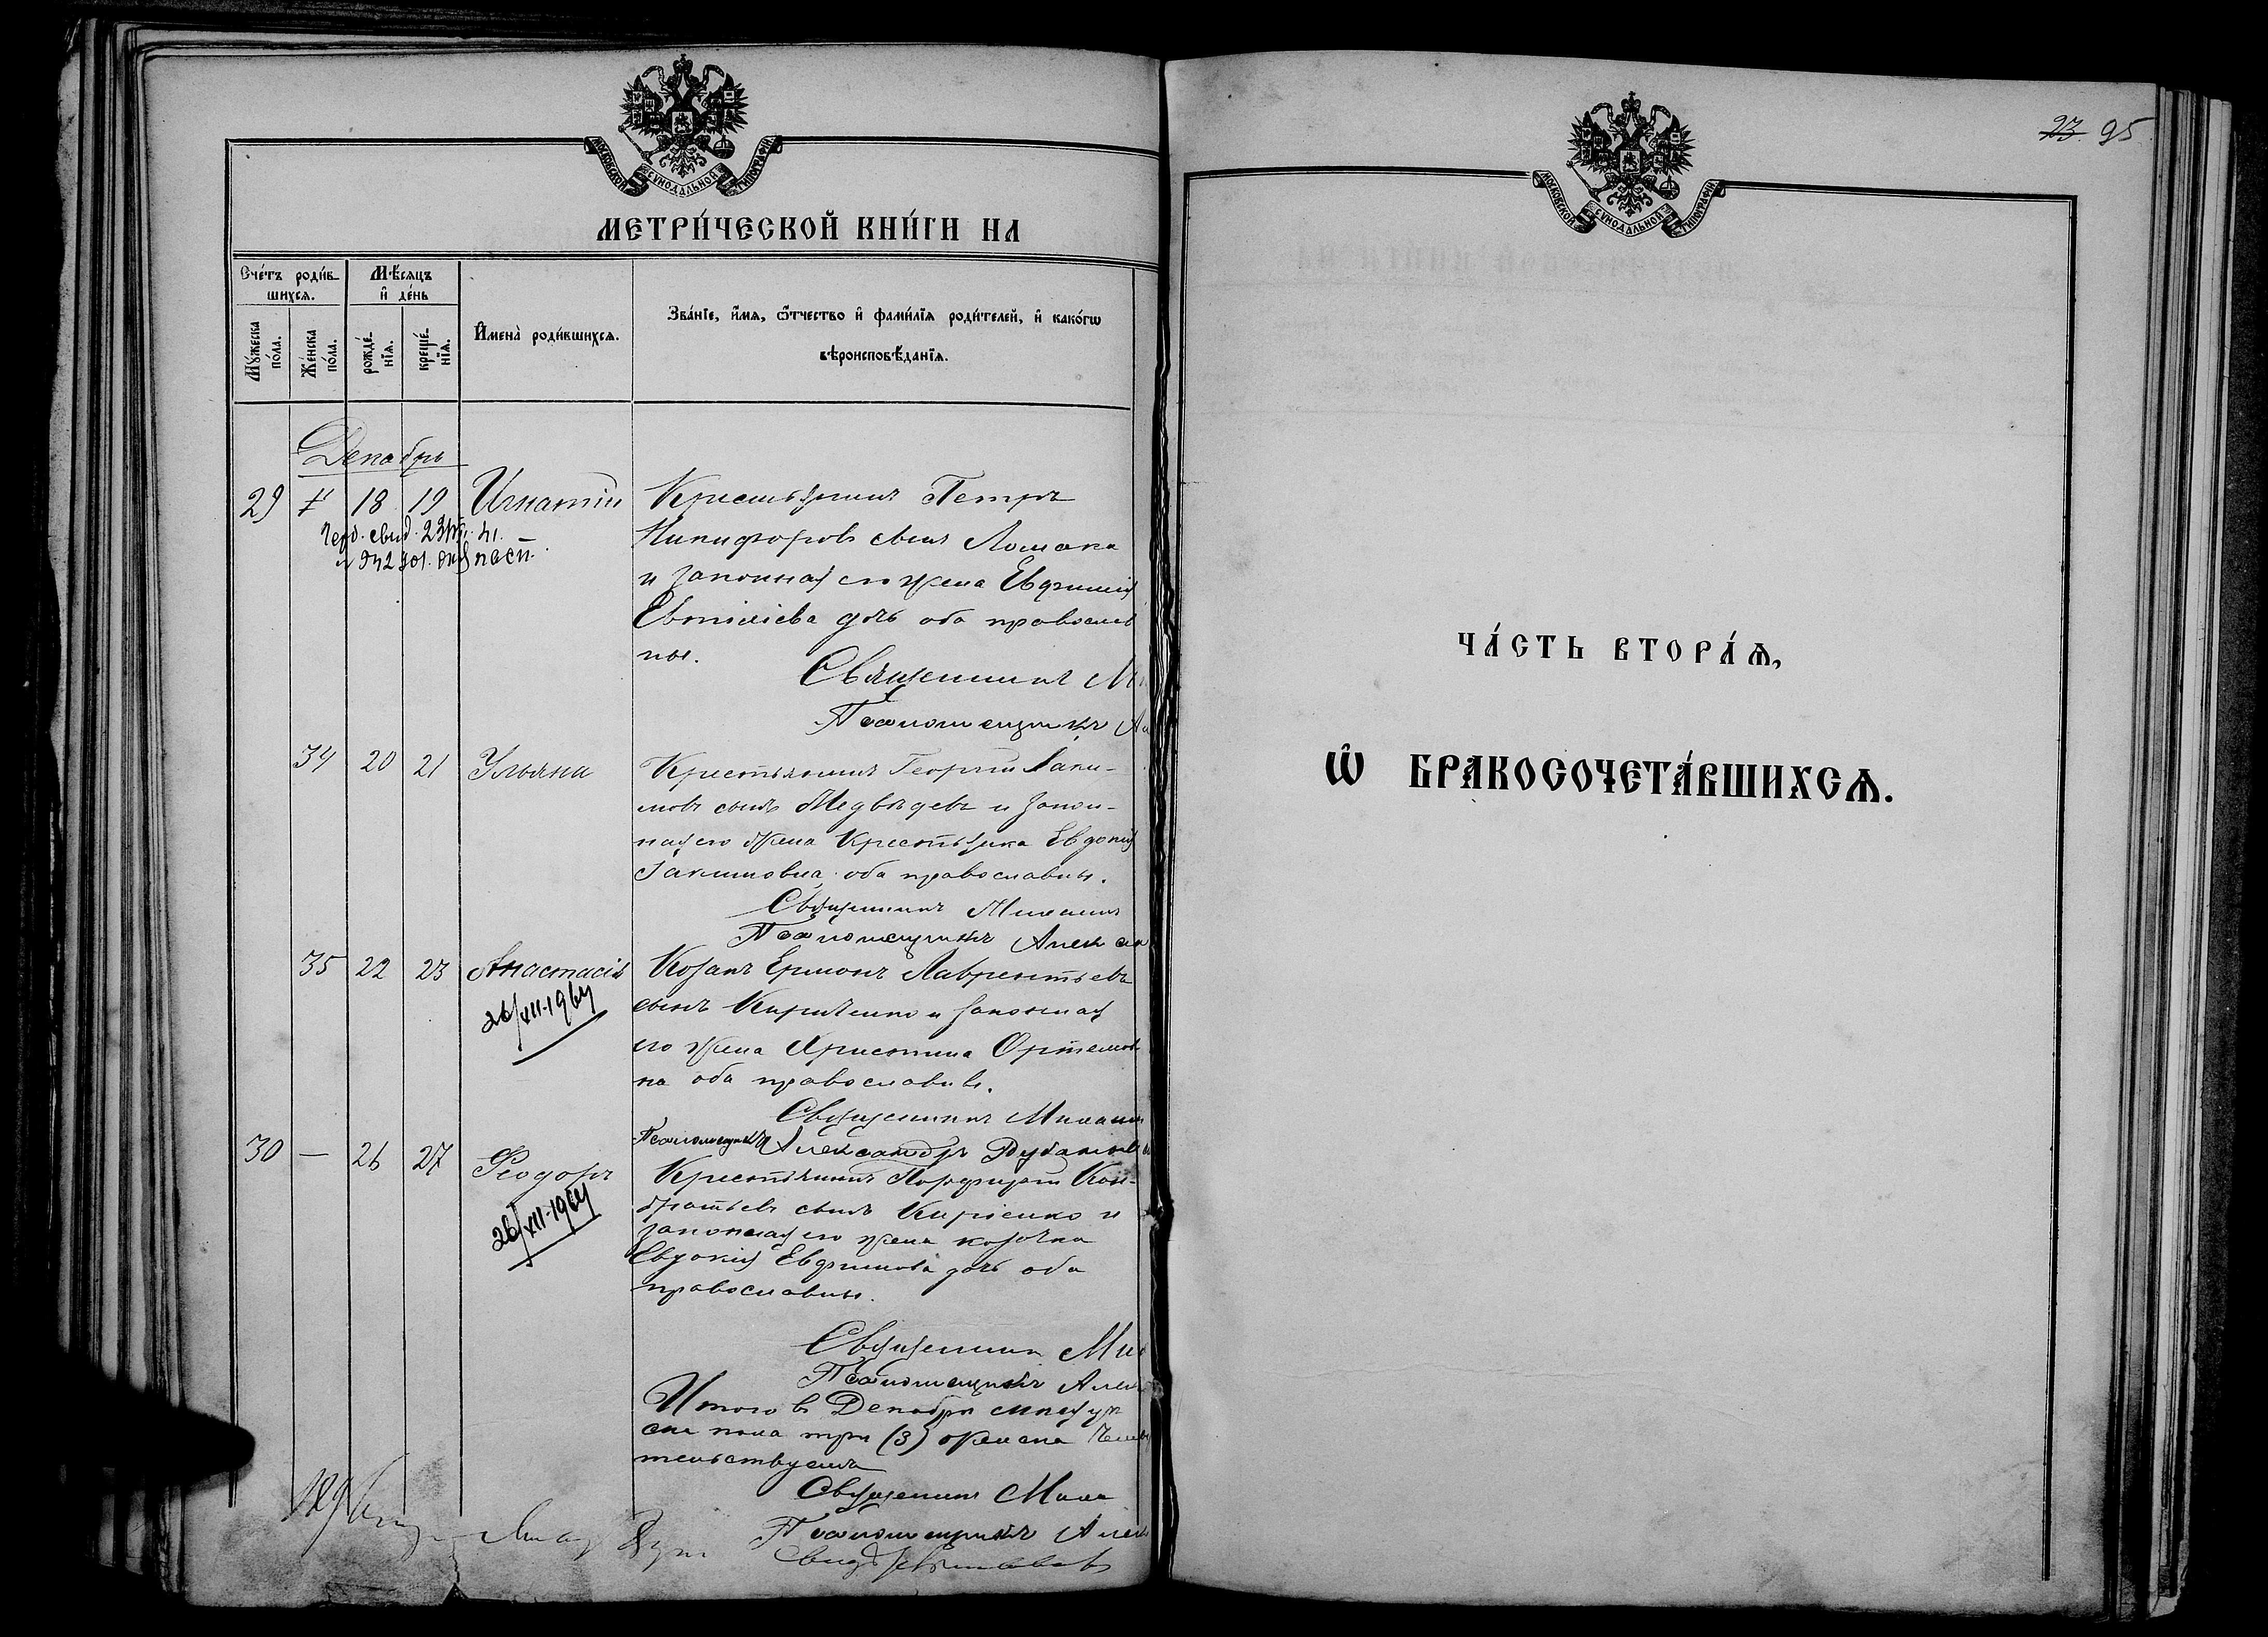 МОСКОВСКОЙ СѴНОДАЛЬНОЙ ТИПОГРАФІИ
МЕТРИ́ЧЕСКОЙ КНИ́ГИ НА
Сче́тъ роди́в-
шихсѧ.
Мѣ́сѧцъ
и҆ де́нь
Мꙋ́жеска
по́ла.
Же́нска
по́ла.
рожде́-
нїѧ.
креще́-
нїѧ.
И҆мена̀ роди́вшихсѧ.
Зва́нїе, и҆́мѧ, ѻ҆́тчество и҆ фами́лїѧ роди́телей, и҆ како́гѡ
вѣроисповѣ́данїѧ.
Декабрь
29 18 19 Игнатій
Крестьянинъ Петръ
Никифоровъ сынъ Ломака
и законная его жена Евфимія
Евтихіева дочь оба православ
ны.
Священникъ М
Псаломщикъ Ал
34 20 21 Ульяна
Крестьянинъ Георгій Іаки-
мовъ сынъ Медвѣдевъ и закон-
ная его жена Крестьянка Евдокія
Іакимовна оба православны.
Священникъ Михаилъ
Псаломщикъ Алексан
35 22 23 Анастасія
26/XII-1964
Козакъ Ермонъ Лаврентьевъ
сынъ Кириченко и законная
его жена Христина Ортемов
на оба православны.
Священникъ Михаил
Псаломщикъ Александръ
30 — 26 27 Феодоръ
26/XII-1964
Крестьянинъ Порфирій Кон-
дратьевъ сынъ Киріенко и
законная его жена козачка
Евдокія Евфимова дочь оба
православны.
Священникъ Мих
Псаломщикъ Алек
Итого въ Декабрѣ мѣсяцѣ муж
ска пола три (3) женска
тельствуемъ
Священникъ Миха
Псаломщикъ Алек
23. 95
МОСКОВСКОЙ СѴНОДАЛЬНОЙ ТИПОГРАФІИ
ЧА́СТЬ ВТОРА́Ѧ,
Ѡ҆ БРАКОСОЧЕТА́ВШИХСѦ.